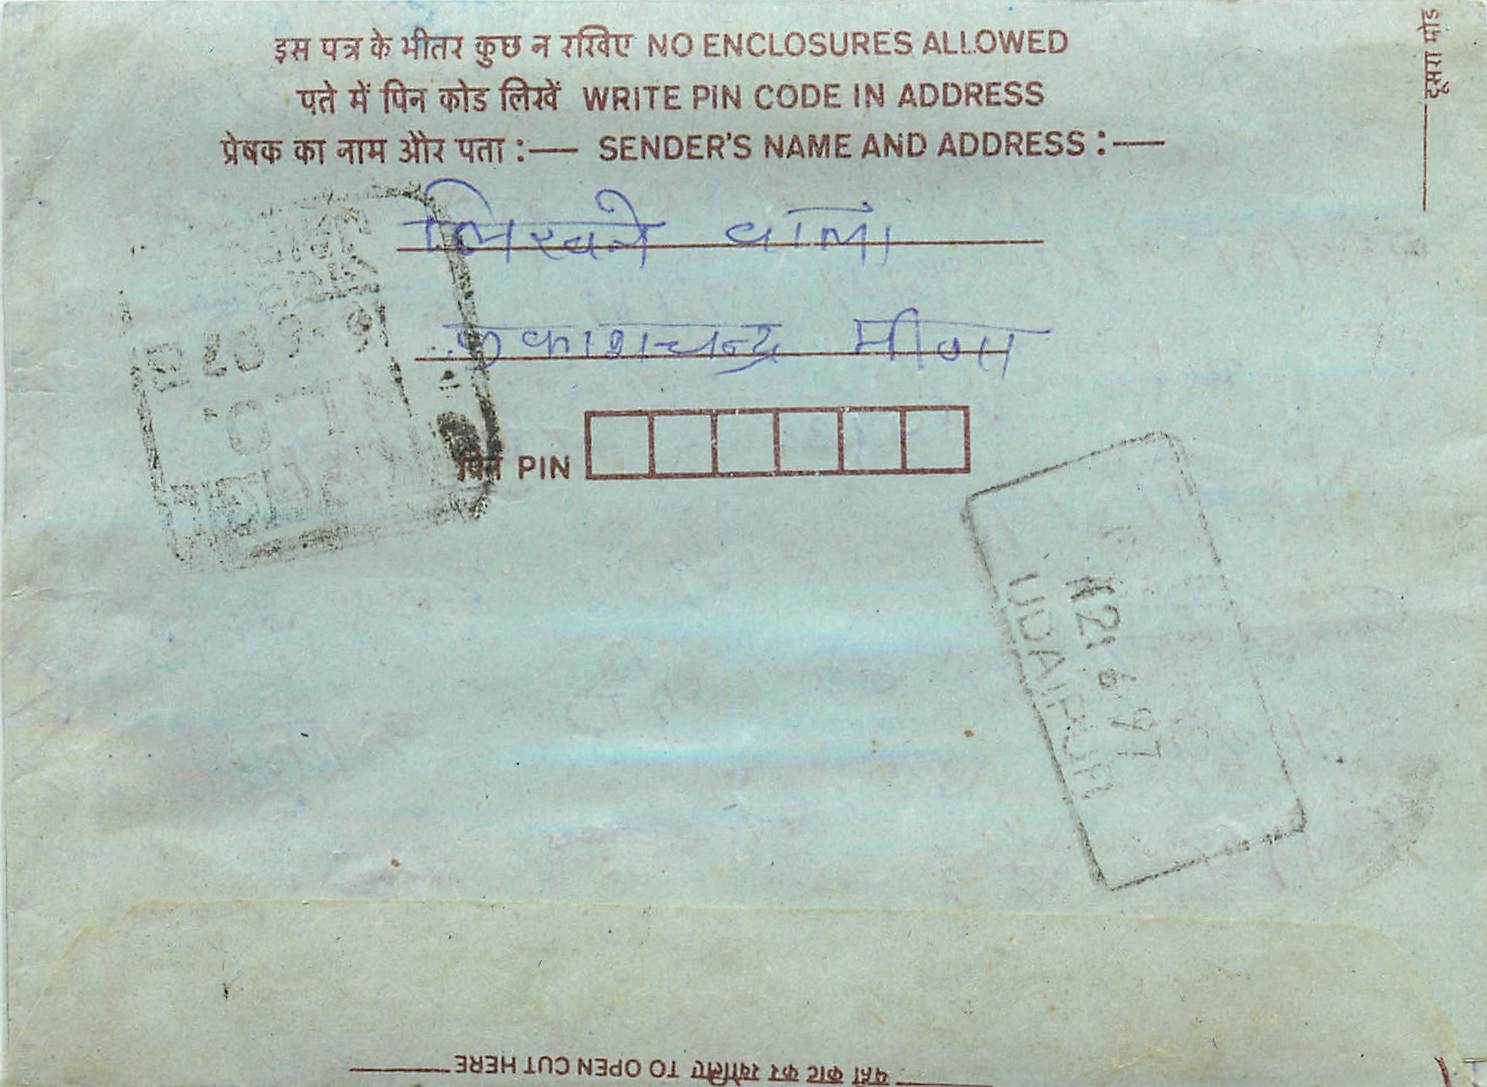 इस पत्र के भीतर कुछ न रखिए NO ENCLOSURES ALLOWED
पते में पिन कोड लिखें WRITE PIN CODE IN ADDRESS
प्रेषक का नाम और पता :— SENDER'S NAME AND ADDRESS :—
लिखने वाला
प्रकाशचन्द्र मीणा
पिन PIN
21 6 97
UDAIPUR
दूसरा मोड़
यहां काट कर खोलिए TO OPEN CUT HERE